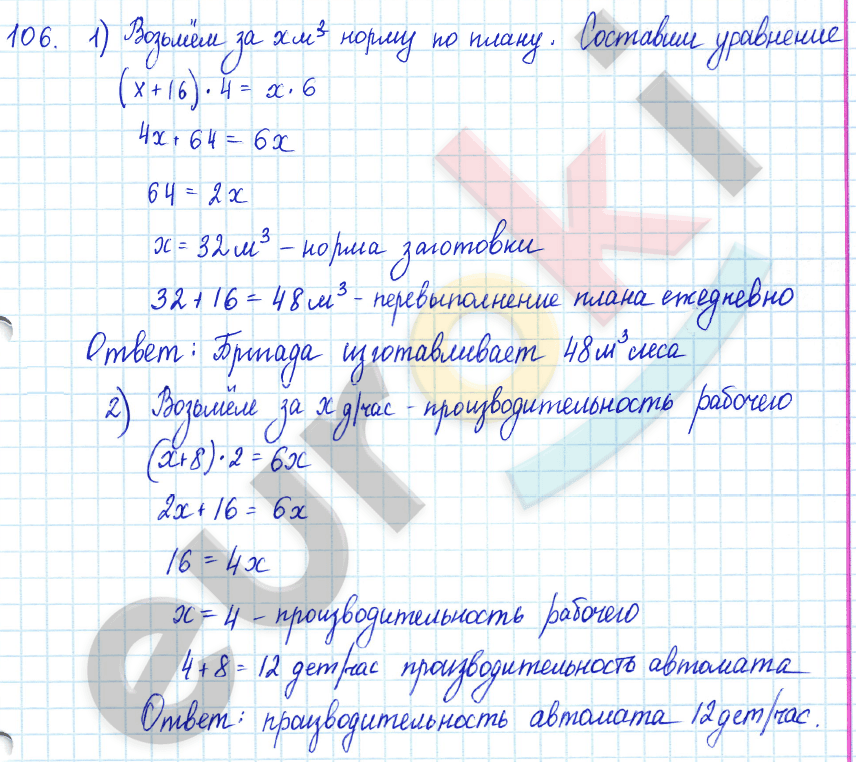 106. 1) Возьмём за x м³ норму по плану. Составим уравнение
(x+16)·4 = x·6
4x + 64 = 6x
64 = 2x
x = 32 м³ – норма заготовки
32 + 16 = 48 м³ - перевыполнение плана ежедневно
Ответ: Бригада изготавливает 48 м³ леса
2) Возьмём за x д/час - производительность рабочего
(x+8)·2 = 6x
2x + 16 = 6x
16 = 4x
x = 4 – производительность рабочего
4 + 8 = 12 дет/час производительность автомата
Ответ: производительность автомата 12 дет/час.
euroki